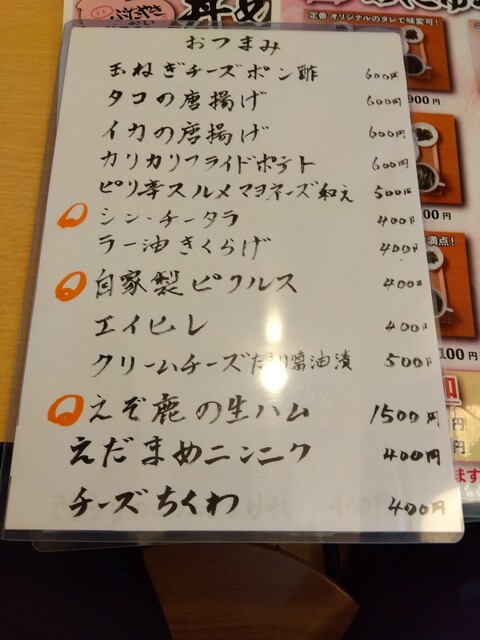 おつまみ
玉ねぎチーズポン酢 600円
タコの唐揚げ 600円
イカの唐揚げ 600円
カリカリフライドポテト 600円
ピリ辛スルメマヨネーズ和え 500円
シン・チータラ 400円
ラー油きくらげ 400円
自家製ピクルス 400円
エイヒレ 400円
クリームチーズたまり醤油漬 500円
えぞ鹿の生ハム 1500円
えだまめニンニク 400円
チーズちくわ 400円
定番 オリジナルのタレで味変可!
900円
00円
満点!
100円
円
円
ます